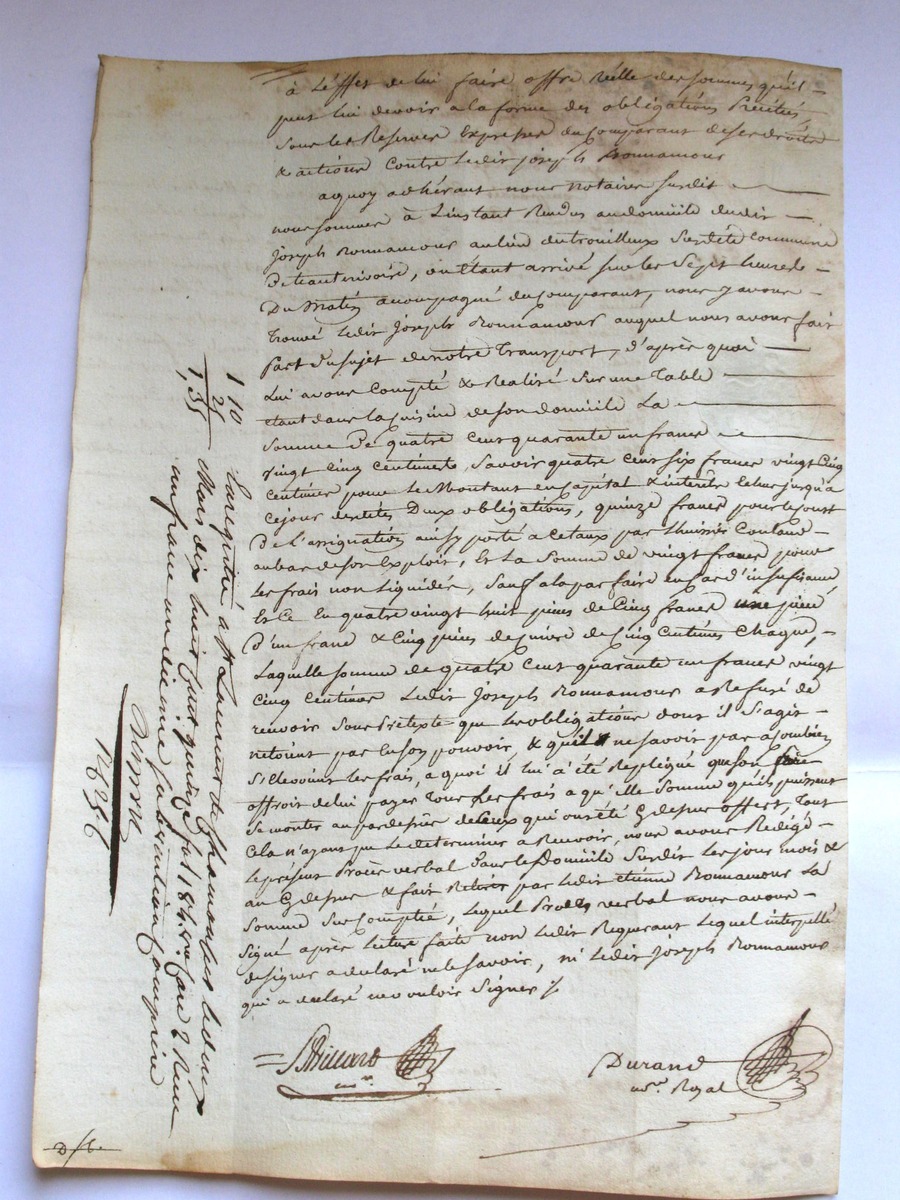 à L'effet de lui faire offre réelle des sommes qu'il
peut lui devoir a la forme des obligations Précités,
sous les Reserves Expresses du comparant de ses droits
& actions contre ledit joseph Bonnamour
aquoy adhérant nous notaires susdit
nous sommes à Linstant Rendus audomicile dudit
joseph Bonnamour au lieu du trouilleux Susdité Commune
, ou étant arrivé sur les Sept heures
Du Matin acompagné du comparant, nous y avons
trouvé ledit joseph Bonnamour auquel nous avons fait
Part du sujet de notre transport, d'après quoi
Lui avons Compté & Realisé Sur une table
étant dans la cuisine de son domicile La
Somme De quatre cent quarante un francs
vingt cinq centimes, Savoir quatre cent six francs vingt cinq
centimes pour le Montant en capital & interêts leur jusqu'a
cejour desdites Deux obligations, quinze francs pour le cout
De l'assignation ainsy porté a cetaux par Lhuissier
au bas de son Exploit, Et La Somme de vingt francs pour
Les frais non Liquidés, Sauf a la parfaire en cas d'insufisance
Et Ce En quatre vingt huit pieces de Cinq francs une piece
D'un franc & Cinq pieces de cuivre de Cinq Centimes Chaque,
Laquelle somme de quatre Cent quarante un francs vingt
Cinq Centimes Ledit joseph Bonnamour a Refusé de
recevoir Sous Prétexte que les obligations dont il S'agit
netoint pas En son pouvoir, & quil ne savoir pas a combien
S'élevoint les frais, a quoi il lui a été Repliqué que l'on
offroit de lui payer tous les frais a qu'elle Somme qu'ils puissent
Se monter au par dessus de Ceux qui ont été Cy dessus offert, tout
Cela n'ayant pu le determiner a Recevoir, nous avons Redigé
le présent Procès verbal dans le Domicile Susdit Les jour mois &
an Cy dessus & fait Retirer par ledit étienne Bonnamour La
Somme Sus Comptée, Lequel Procès verbal nous avons
Signé après lecture faite non Ledit Requerant Lequel interpellé
de signer a declaré ne le savoir, ni Ledit Joseph Bonnamour
qui a declaré ne vouloir Signer
Billard
nre.
Durand
nore. Royal
1 10
25
1,35
Enregistré à St Laurent de Chamousset le dix
Mars dix huit cent quinze fol 184 case 2 Reçu
un franc un décime subvention comprise